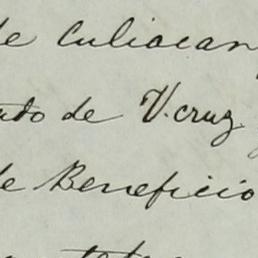 de Culiacan
de V.cruz
de Beneficio